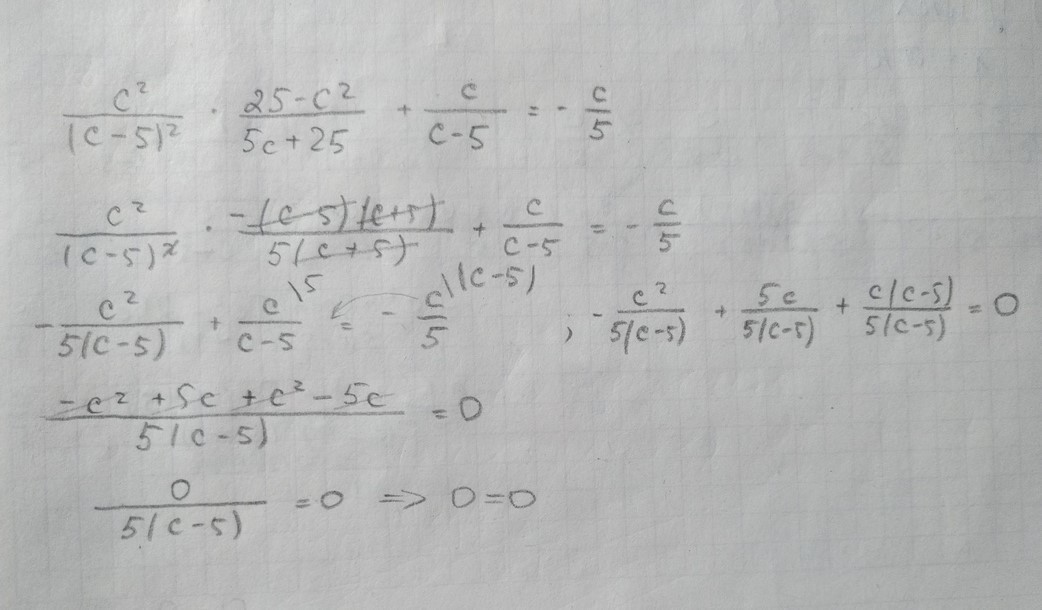 c²/(c-5)² · (25-c²)/(5c+25) + c/(c-5) = - c/5
c²/(c-5)² · -(c-5)(c+5)/5(c+5) + c/(c-5) = - c/5
- c²/5(c-5) + c\5/(c-5) = - c\(c-5)/5 ; - c²/5(c-5) + 5c/5(c-5) + c(c-5)/5(c-5) = 0
(-c² + 5c + c² - 5c)/5(c-5) = 0
0/5(c-5) = 0 => 0=0